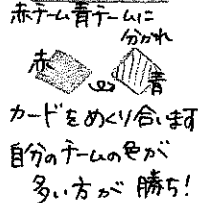 赤チーム青チームに
分かれ
赤
青
カードをめくり合います
自分のチームの色が
多い方が勝ち!